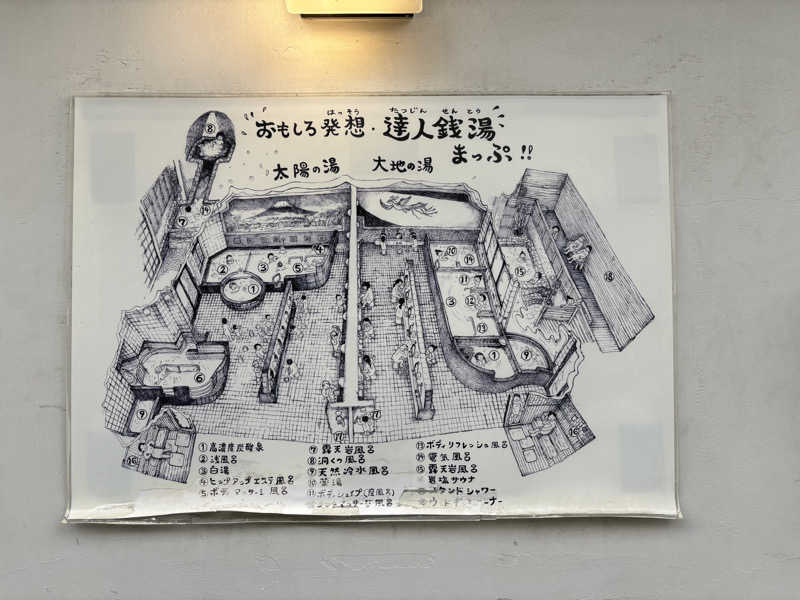 おもしろ発想・達人銭湯
はっそう たつじん せんとう
まっぷ!!
太陽の湯 大地の湯
①高濃度炭酸泉
②浅風呂
③白湯
④ヒップアップエステ風呂
⑤ボディマッサージ風呂
⑦露天岩風呂
⑧洞くつ風呂
⑨天然冷水風呂
⑩薬湯
⑪ボディシェイプ(座風呂)
風呂
⑬ボディリフレッシュ風呂
⑭電気風呂
⑮露天岩風呂
岩塩サウナ
スタンドシャワー
ーナー